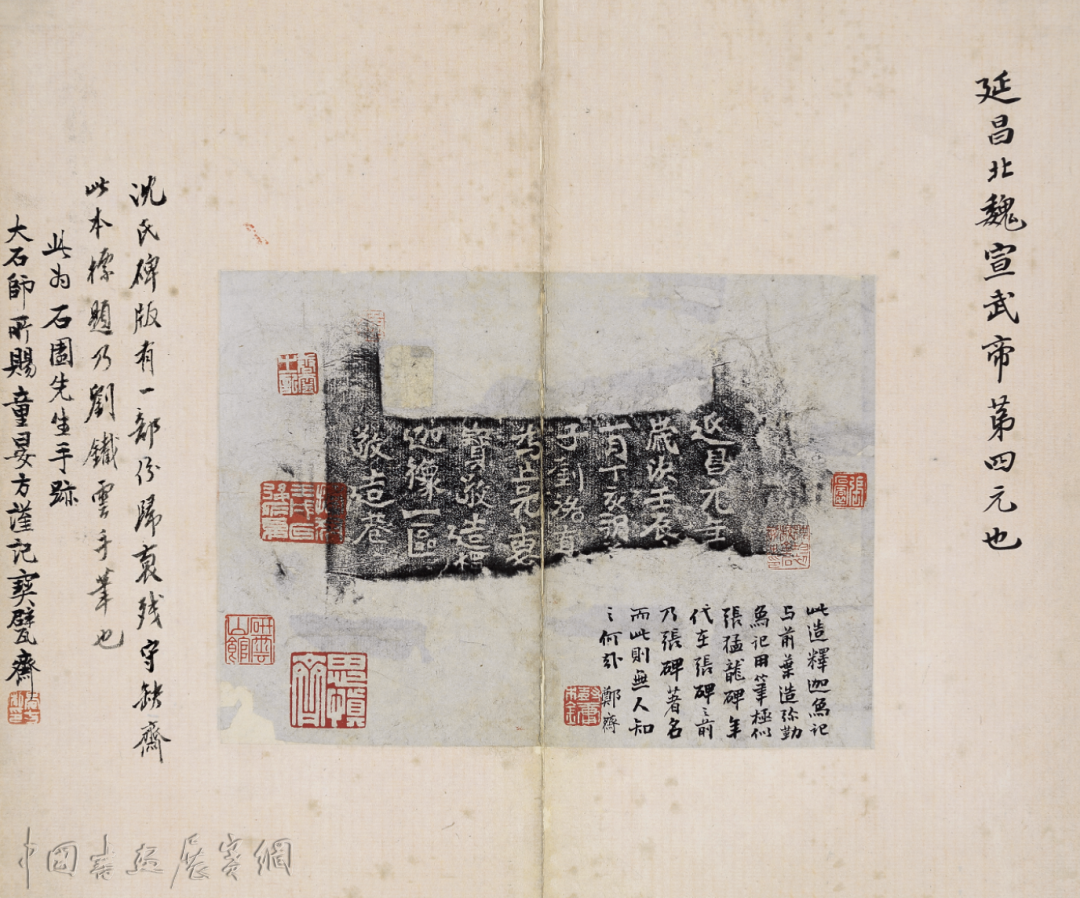 延昌北魏宣武帝第四元也
延昌元年
歲次壬辰
子劉洛真
為亡兄惠
寶敬造釋
迦像一區
敬造
此造釋迦象記
与前葉造弥勒
象記用筆極似
張猛龍碑年
代在張碑之前
乃張碑著名
而此則無人知
之何哉 鄭齋
沈氏碑版有一部份歸裒殘守缺齋
此本標題乃劉鐵雲手筆也
此为石園先生手跡
大石師所賜童晏方謹記 寶甓齋
研雲山館
思慎齋
中國書法展賽網